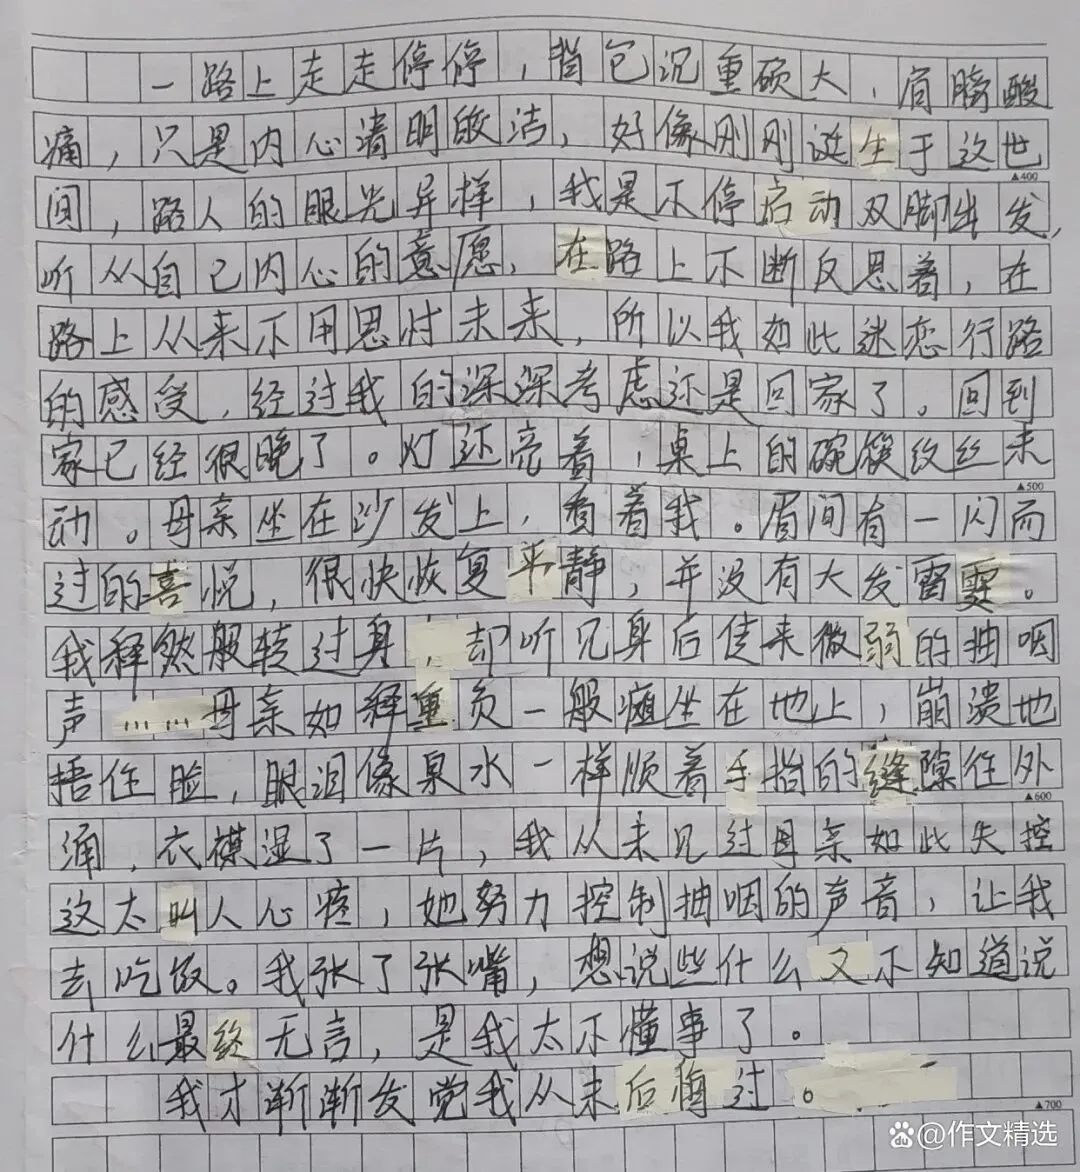 一路上走走停停，背包沉重硕大，肩膀酸
痛，只是内心清明皎洁，好像刚刚诞生于这世
▲400
间，路人的眼光异样，我是不停启动双脚出发，
听从自己内心的意愿，在路上不断反思着，在
路上从来不用思忖未来，所以我如此迷恋行路
的感受，经过我的深深考虑还是回家了。回到
家已经很晚了。灯还亮着，桌上的碗筷纹丝未
▲500
动。母亲坐在沙发上，看着我。眉间有一闪而
过的喜悦，很快恢复平静，并没有大发雷霆。
我释然般转过身，却听见身后传来微弱的抽咽
声……母亲如释重负一般瘫坐在地上，崩溃地
捂住脸，眼泪像泉水一样顺着手指的缝隙往外
▲600
涌，衣襟湿了一片，我从未见过母亲如此失控
这太叫人心疼，她努力控制抽咽的声音，让我
去吃饭。我张了张嘴，想说些什么又不知道说
什么最终无言，是我太不懂事了。
我才渐渐发觉我从未后悔过。
▲700
Baidu@作文精选